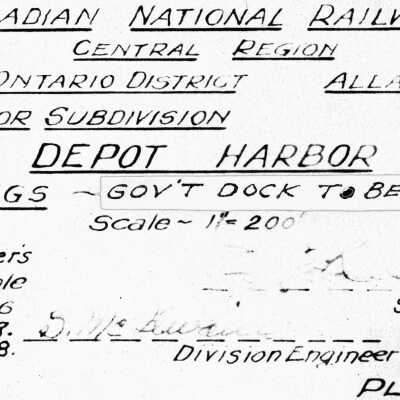 ADIAN NATIONAL RAILW
CENTRAL REGION
ONTARIO DISTRICT ALLA
OR SUBDIVISION
DEPOT HARBOR
GS ~ GOV'T DOCK TO BE
Scale ~ 1"= 200'
er's
ple
6
8.
8.
Division Engineer
PL